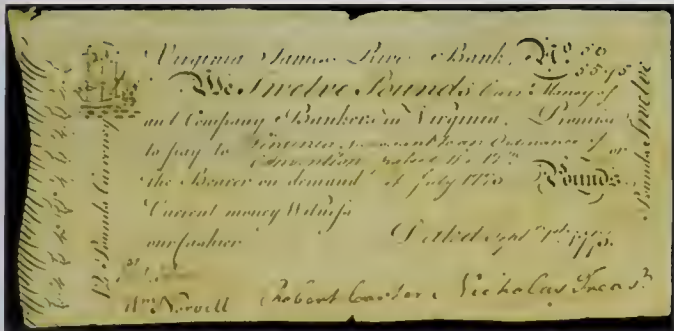 Virginia James River Bank, No. 50
We Twelve Pounds Curr. Money of
and Company Bankers in Virginia, Promise
to pay to Virginia, pursuant to an Ordinance of or
Convention passed the 17th
the Bearer on demand of July 1775 Pounds
Current money Witness
our Cashier Dated Sept 1st 1775
Wm Norvell Robert Carter Nicholas Treasr
12 Pounds Currency
Pounds Twelve